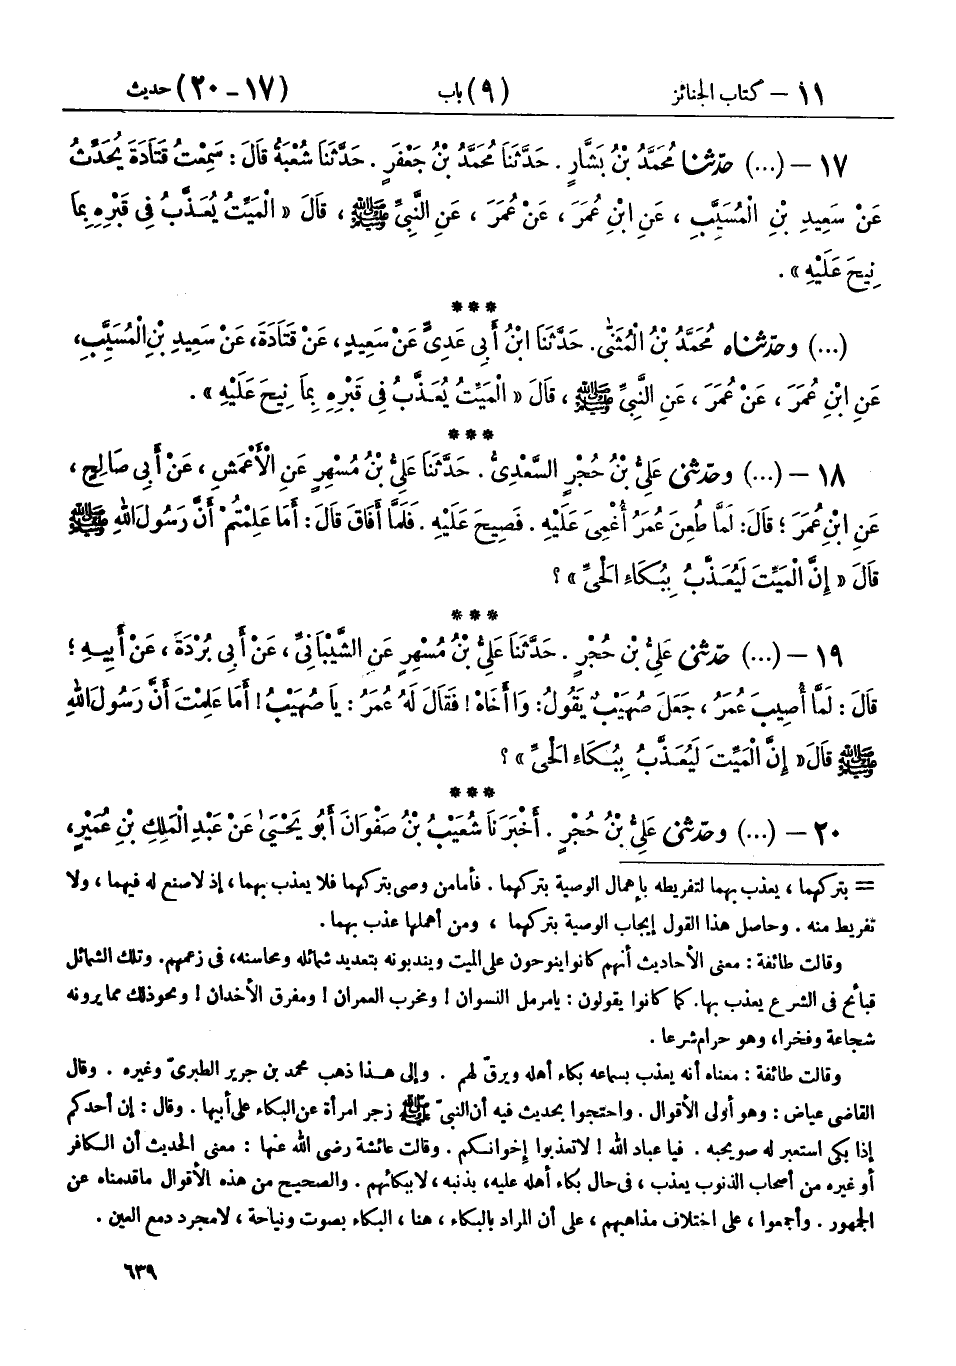 ١١ – كتاب الجنائز (٩) باب (١٧ – ٢٠) حديث
١٧ – (...) حدّثنا مُحَمَّدُ بْنُ بَشَّارٍ . حَدَّثَنَا مُحَمَّدُ بْنُ جَعْفَرٍ . حَدَّثَنَا شُعْبَةُ قَالَ : سَمِعْتُ قَتَادَةَ يُحَدِّثُ
عَنْ سَعِيدِ بْنِ الْمُسَيَّبِ ، عَنِ ابْنِ عُمَرَ ، عَنْ عُمَرَ ، عَنِ النَّبِيِّ ﷺ ، قَالَ « الْمَيِّتُ يُعَذَّبُ فِي قَبْرِهِ بِمَا
نِيحَ عَلَيْهِ » .
***
(...) وحدّثناه مُحَمَّدُ بْنُ الْمُثَنَّى. حَدَّثَنَا ابْنُ أَبِي عَدِيٍّ عَنْ سَعِيدٍ، عَنْ قَتَادَةَ، عَنْ سَعِيدِ بْنِ الْمُسَيَّبِ،
عَنِ ابْنِ عُمَرَ ، عَنْ عُمَرَ ، عَنِ النَّبِيِّ ﷺ ، قَالَ « الْمَيِّتُ يُعَذَّبُ فِي قَبْرِهِ بِمَا نِيحَ عَلَيْهِ » .
***
١٨ – (...) وحدّثني عَلِيُّ بْنُ حُجْرٍ السَّعْدِيُّ . حَدَّثَنَا عَلِيُّ بْنُ مُسْهِرٍ عَنِ الْأَعْمَشِ ، عَنْ أَبِي صَالِحٍ ،
عَنِ ابْنِ عُمَرَ ؛ قَالَ: لَمَّا طُعِنَ عُمَرُ أُغْمِيَ عَلَيْهِ . فَصِيحَ عَلَيْهِ . فَلَمَّا أَفَاقَ قَالَ : أَمَا عَلِمْتُمْ أَنَّ رَسُولَ اللهِ ﷺ
قَالَ « إِنَّ الْمَيِّتَ لَيُعَذَّبُ بِبُكَاءِ الْحَيِّ » ؟
***
١٩ – (...) حدّثني عَلِيُّ بْنُ حُجْرٍ . حَدَّثَنَا عَلِيُّ بْنُ مُسْهِرٍ عَنِ الشَّيْبَانِيِّ ، عَنْ أَبِي بُرْدَةَ ، عَنْ أَبِيهِ ؛
قَالَ : لَمَّا أُصِيبَ عُمَرُ ، جَعَلَ صُهَيْبٌ يَقُولُ: وَا أَخَاهْ ! فَقَالَ لَهُ عُمَرُ : يَا صُهَيْبُ! أَمَا عَلِمْتَ أَنَّ رَسُولَ اللهِ
ﷺ قَالَ « إِنَّ الْمَيِّتَ لَيُعَذَّبُ بِبُكَاءِ الْحَيِّ » ؟
***
٢٠ – (...) وحدّثني عَلِيُّ بْنُ حُجْرٍ . أَخْبَرَنَا شُعَيْبُ بْنُ صَفْوَانَ أَبُو يَحْيَىٰ عَنْ عَبْدِ الْمَلِكِ بْنِ عُمَيْرٍ،
= بتركهما ، يعذب بهما لتفريطه بإهمال الوصية بتركهما . فأما من وصى بتركهما فلا يعذب بهما ، إذ لا صنع له فيهما ، ولا
تفريط منه . وحاصل هذا القول إيجاب الوصية بتركهما ، ومن أهملها عذب بهما .
وقالت طائفة : معنى الأحاديث أنهم كانوا ينوحون على الميت ويندبونه بتعديد شمائله ومحاسنه، في زعمهم. وتلك الشمائل
قبائح في الشرع يعذب بها. كما كانوا يقولون : يا مرمل النسوان ! ومخرب العمران ! ومفرق الأخدان ! ونحو ذلك مما يرونه
شجاعة وفخرا، وهو حرام شرعا .
وقالت طائفة : معناه أنه يعذب بسماعه بكاء أهله ويرقّ لهم . وإلى هذا ذهب محمد بن جرير الطبريّ وغيره . وقال
القاضي عياض : وهو أولى الأقوال . واحتجوا بحديث فيه أن النبيّ ﷺ زجر امرأة عن البكاء على أبيها . وقال : إن أحدكم
إذا بكى استعبر له صويحبه . فيا عباد الله ! لا تعذبوا إخوانكم . وقالت عائشة رضي الله عنها : معنى الحديث أن الكافر
أو غيره من أصحاب الذنوب يعذب ، في حال بكاء أهله عليه، بذنبه ، لا ببكائهم . والصحيح من هذه الأقوال ما قدمناه عن
الجمهور . وأجمعوا ، على اختلاف مذاهبهم ، على أن المراد بالبكاء ، هنا ، البكاء بصوت ونياحة ، لا مجرد دمع العين .
٦٣٩